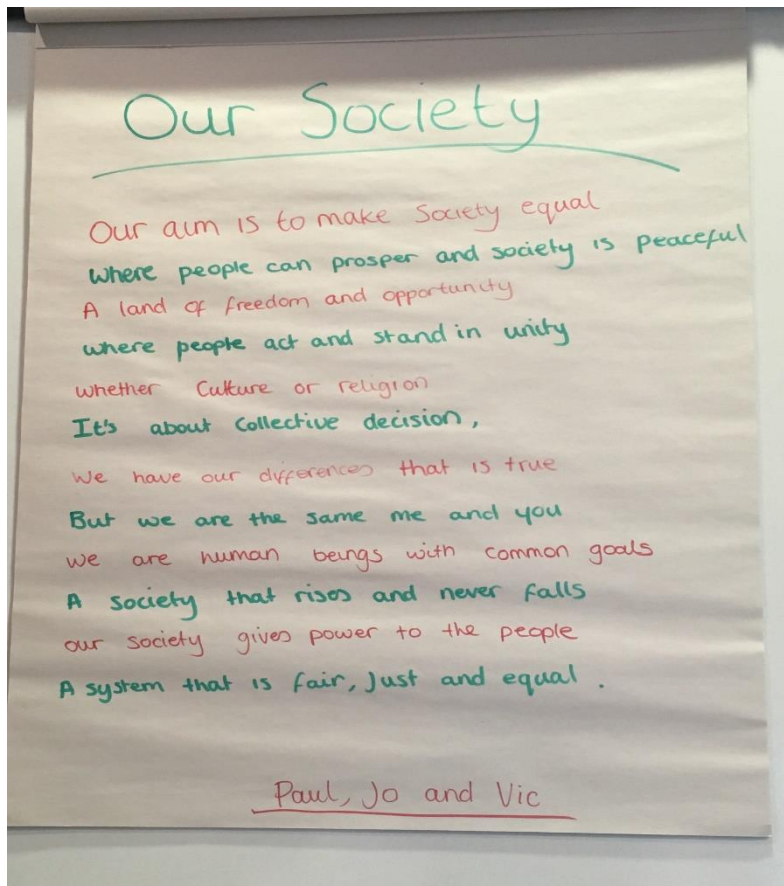 Our Society
Our aim is to make Society equal
where people can prosper and society is peaceful
A land of freedom and opportunity
where people act and stand in unity
whether Culture or religion
It's about Collective decision,
We have our differences that is true
But we are the same me and you
we are human beings with common goals
A society that rises and never falls
our society gives power to the people
A system that is fair, Just and equal.
Paul, Jo and Vic